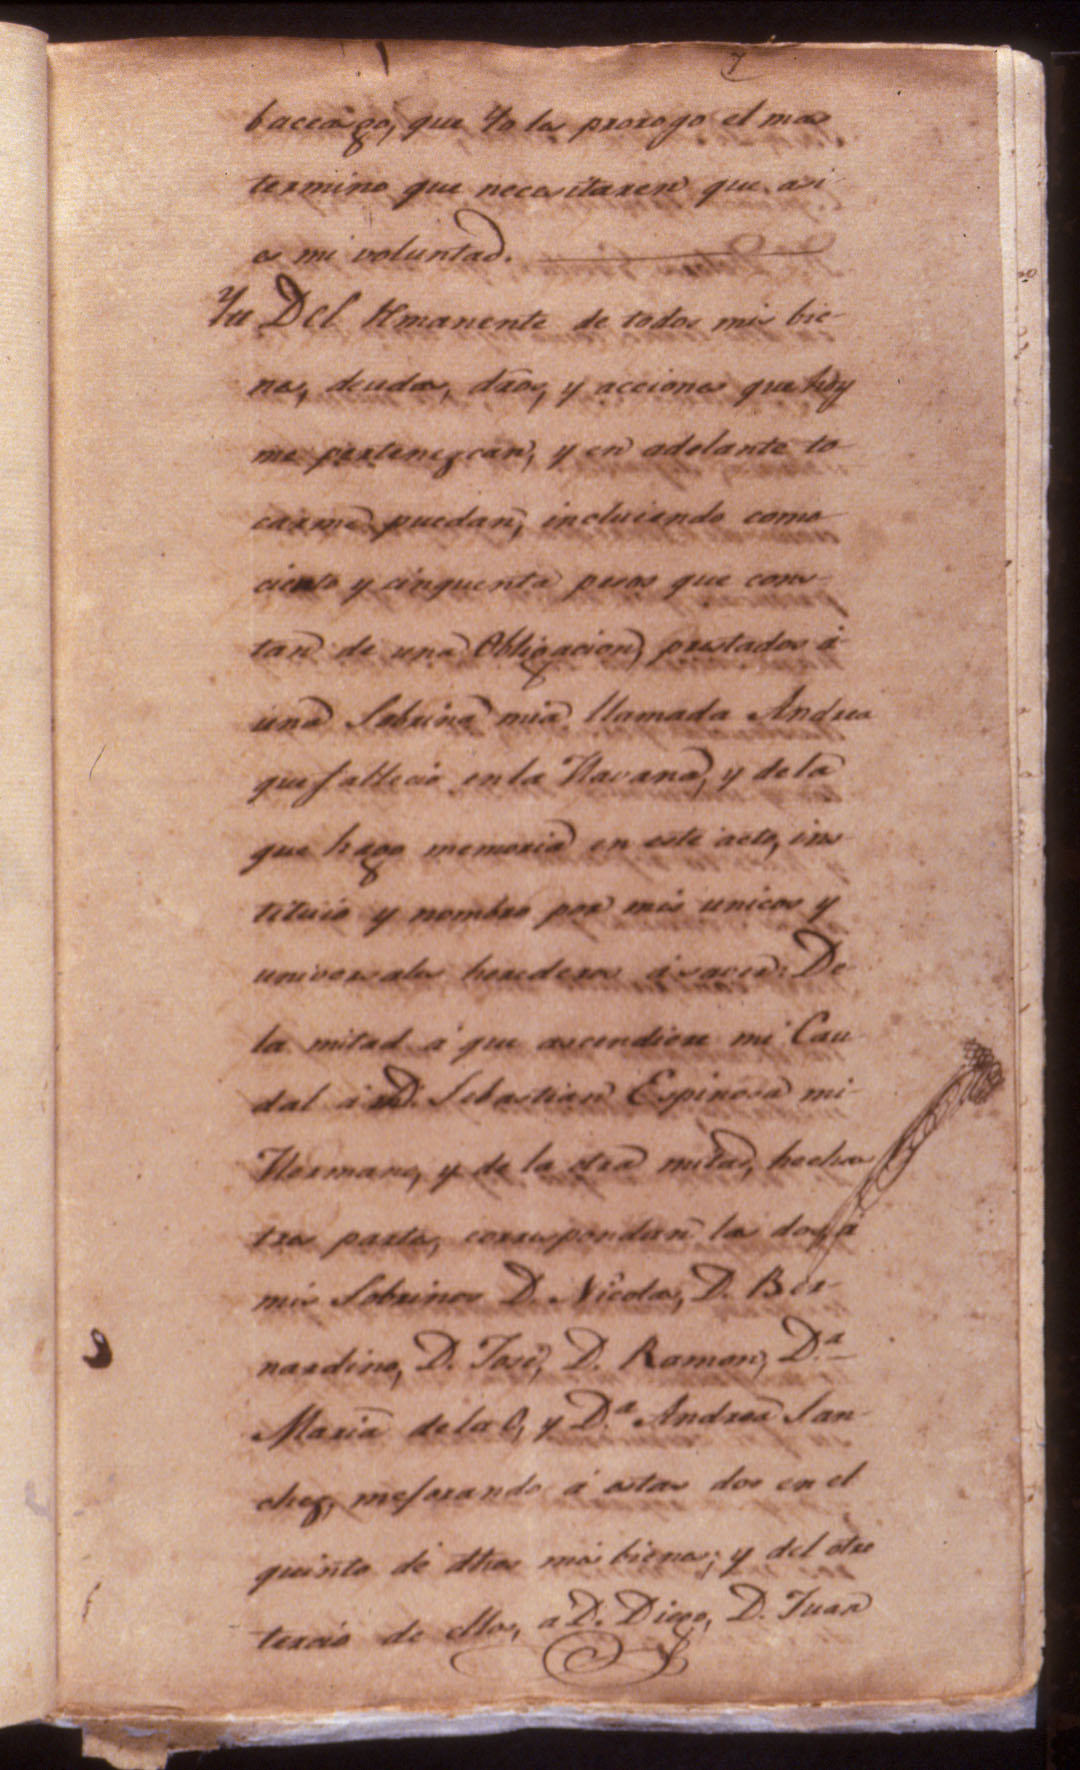 7
baceazgo, que Yo les prorogo el mas
termino que necesitaren que asi
es mi voluntad.
Yu Del Rmanente de todos mis bie-
nes, deudas, dros, y acciones que hoy
me pertenezcan, y en adelante to
carme puedan, incluiendo como
ciento y cinquenta pesos que cons-
tan de una Obligacion, prestados á
una Sobrina mia llamada Andrea
que fallecio en la Havana, y de la
que hago memoria en este acto, ins
tituio y nombro por mis unicos y
universales herederos á saver: De
la mitad á que ascendiere mi Cau
dal á D. Sebastian Espinosa mi
Hermano, y de la otra mitad, hechas
tres partes, correspondan las dos, á
mis Sobrinos D. Nicolas, D. Ber-
nardino, D. José, D. Ramon, D.ª
Maria de la O, y D.ª Andrea San-
chez, mejorando á estas dos en el
quinto de dhos mis bienes; y del otro
tercio de ellos, a D. Diego, D. Juan